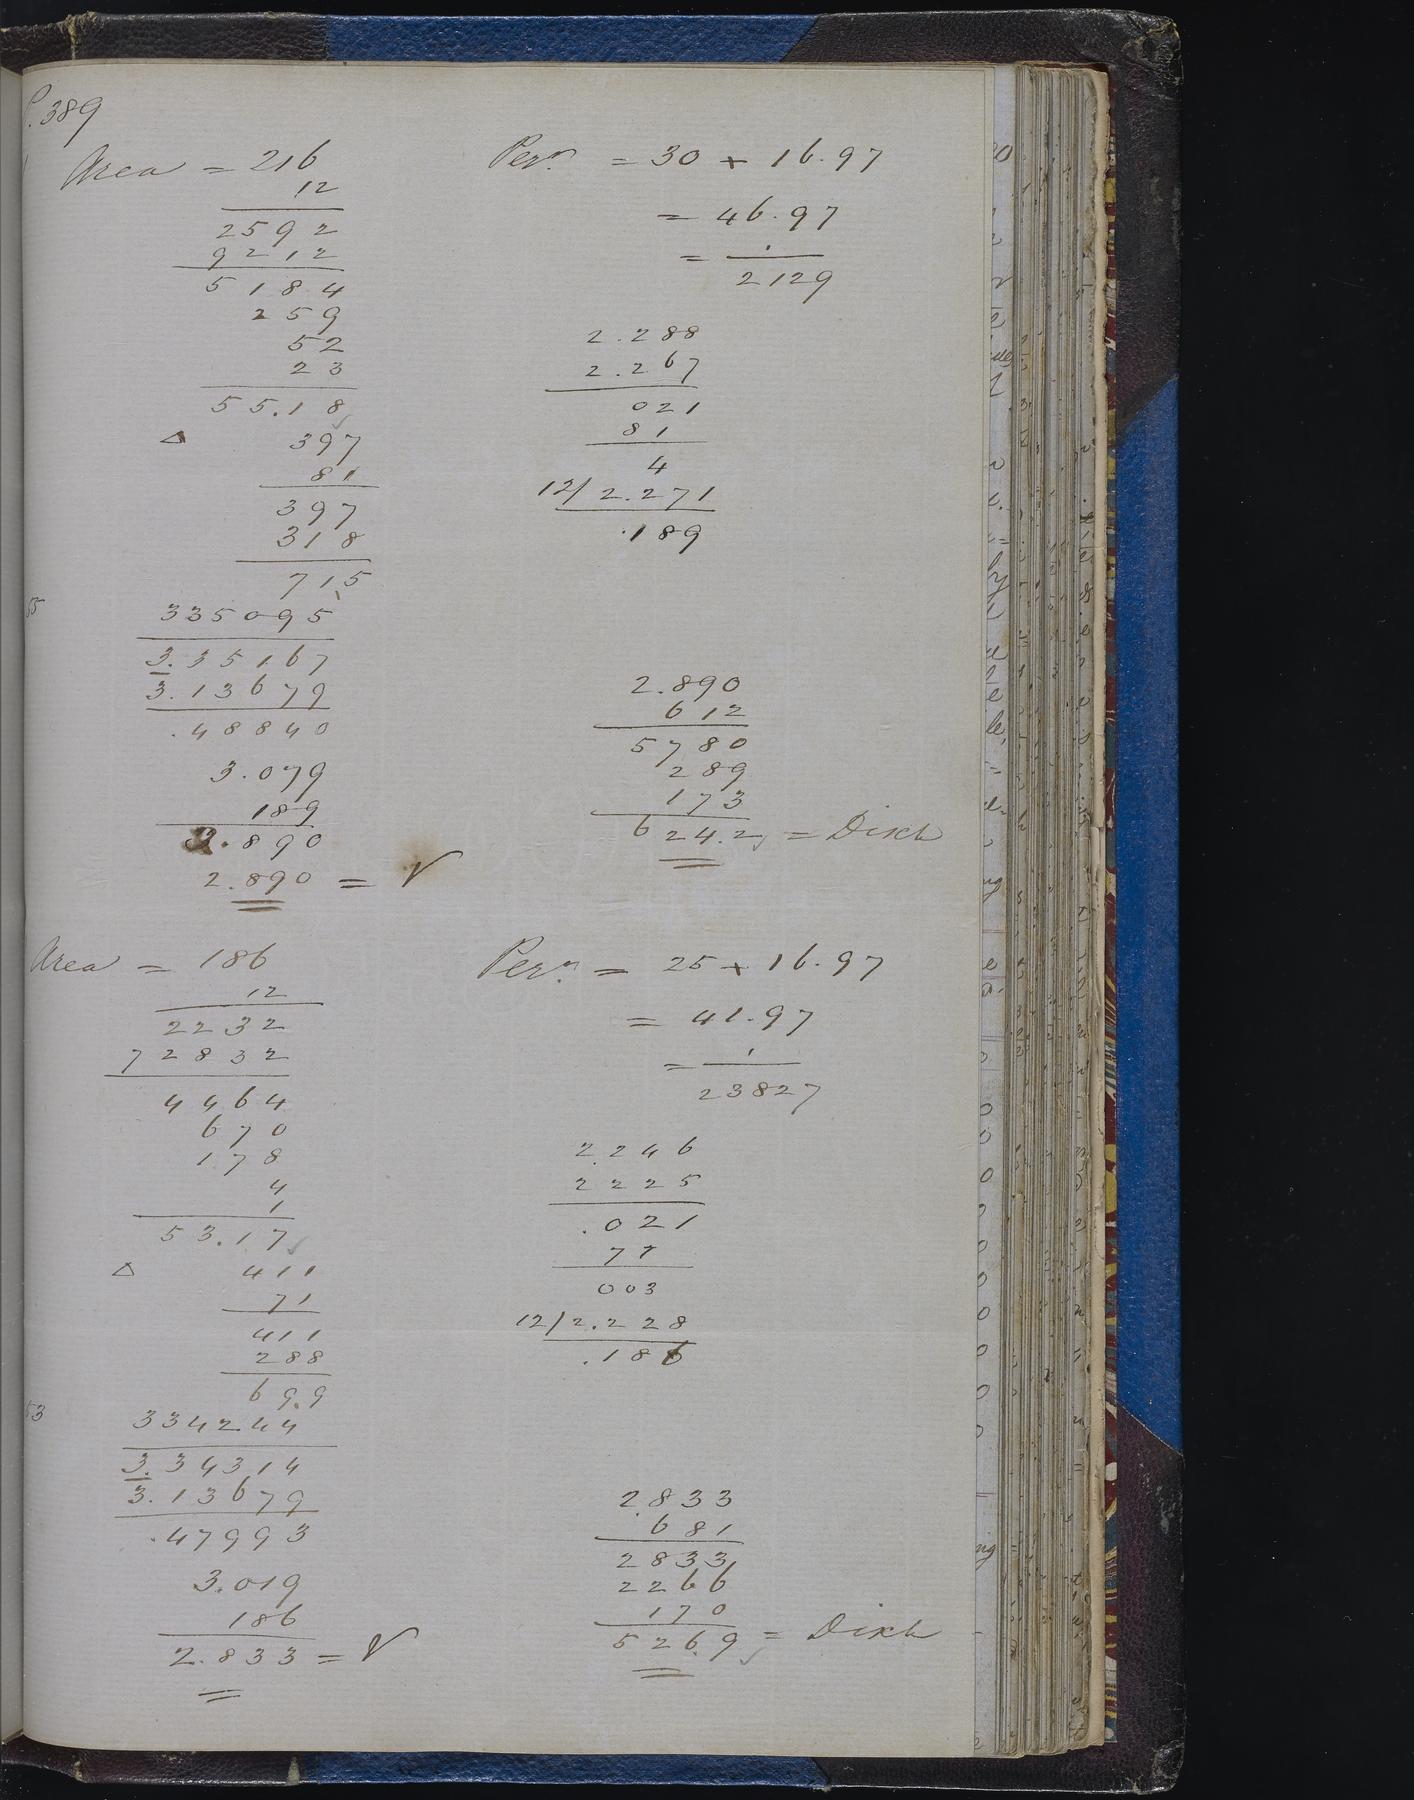 P. 389
Area = 216
12
2592
9212
5184
259
52
23
55.18
Δ 397
81
397
318
715
55
335095
3.35167
3.13679
.48840
3.079
189
3.890
2.890 = V
Perr. = 30 + 16.97
= 46.97
= 1
2129
2.288
2.267
021
81
4
12/2.271
.189
2.890
612
5780
289
173
624.2 = Disch
Area = 186
12
2232
72832
4464
670
178
4
1
53.17
Δ 411
71
411
288
699
53
334244
3.34314
3.13679
.47993
3.019
186
2.833 = V
Perr. = 25 + 16.97
= 41.97
= 1
23827
2.246
2225
.021
71
003
12/2.228
.186
2.833
681
2833
2266
170
526.9 = Disch